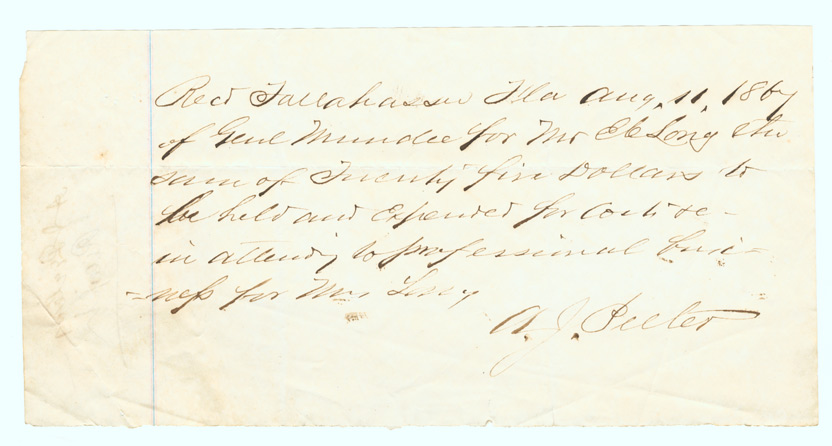 Recd Tallahassee Fla Aug. 11, 1867
of Genl Mundee for Mrs E C Long the
sum of Twenty five Dollars to
be held and Expended for Costs &c
in attendg to professional busi=
=ness for Mrs Long
A. J. Peeler